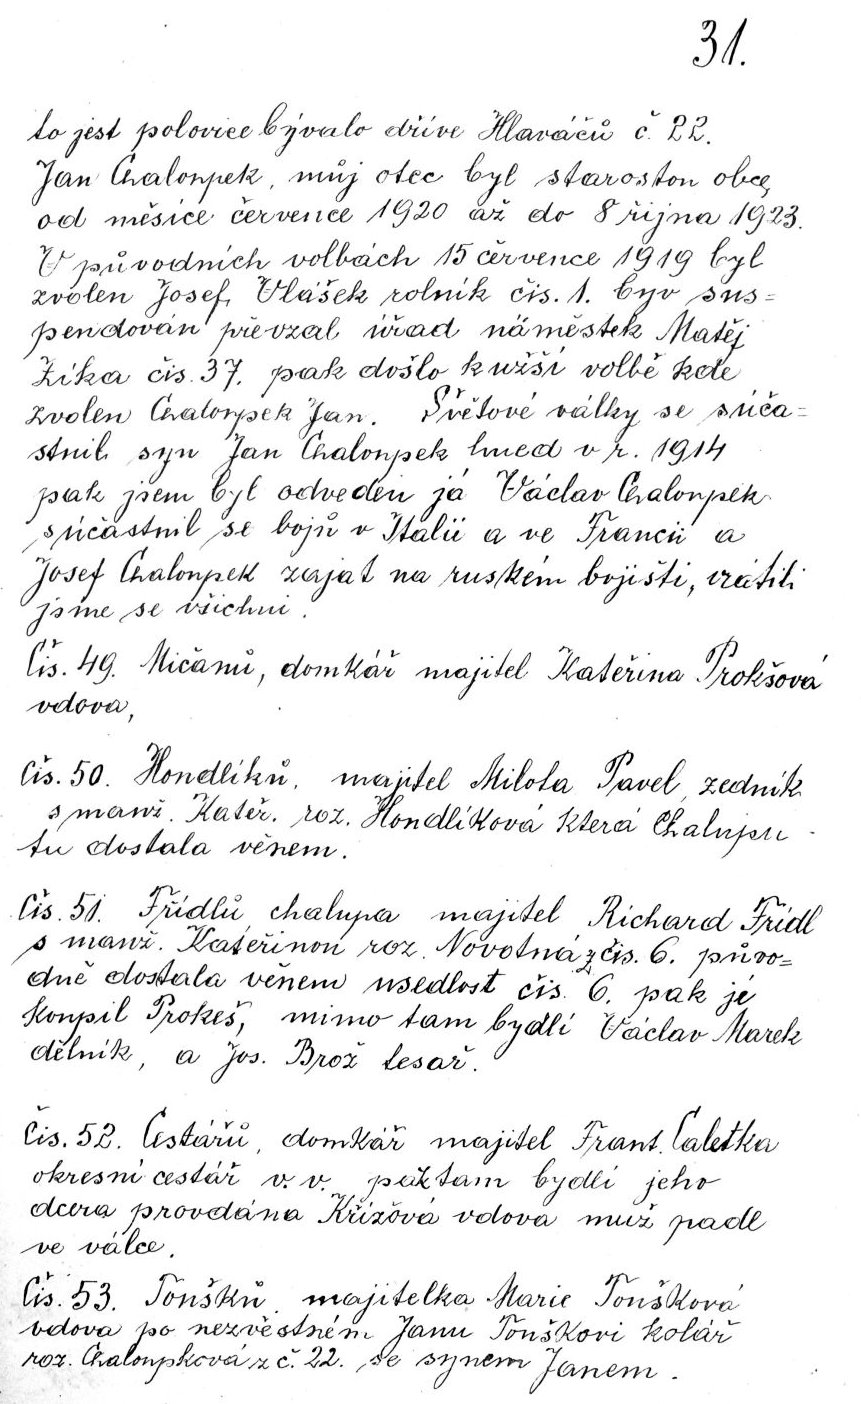 31.
to jest polovice bývalo dříve Hlaváčů č. 22.
Jan Chaloupek, můj otec byl starostou obce,
od měsíce července 1920 až do 8 října 1923.
V původních volbách 15 července 1919 byl
zvolen Josef Vlášek rolník čís. 1. byv sus=
pendován převzal úřad náměstek Matěj
Zíka čís. 37. pak došlo k užší volbě kde
zvolen Chaloupek Jan. Světové války se súča=
stnil syn Jan Chaloupek hned v r. 1914
pak jsem byl odveden já Václav Chaloupek
súčastnil se bojů v Italii a ve Francii a
Josef Chaloupek zajat na ruském bojišti, vrátili
jsme se všichni.
Čís. 49. Mičanů, domkář majitel Kateřina Prokšová
vdova,
čís. 50. Hondlíků. majitel Milota Pavel, zedník
s manž. Kateř. roz. Hondlíková která Chalupu
tu dostala věnem.
Čís. 51. Fřídlů chalupa majitel Richard Fřídl
s manž. Kateřinou roz. Novotná z čís. 6. půvo=
dně dostala věnem usedlost čís. 6. pak je
koupil Prokeš, mimo tam bydlí Václav Marek
dělník, a Jos. Brož tesař.
Čís. 52. Cestářů, domkář majitel Frant. Caletka
okresní cestář v. v. pak tam bydlí jeho
dcera provdána Křížová vdova muž padl
ve válce.
Čís. 53. Toušků, majitelka Marie Toušková
vdova po nezvěstném Janu Touškovi kolář
roz. Chaloupková z č. 22. se synem Janem.